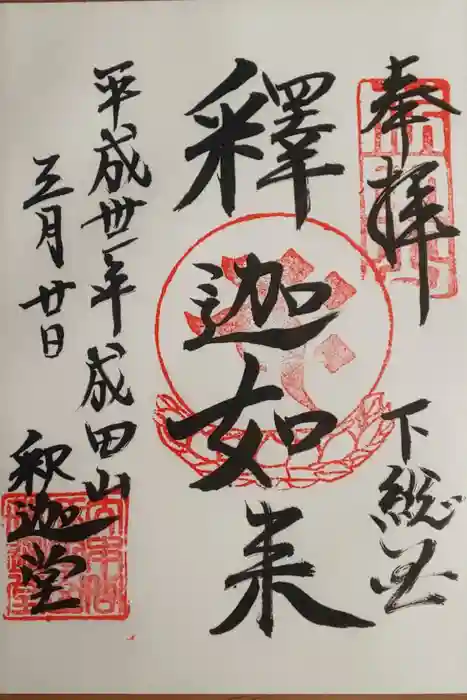 奉拝
下総国
釋迦如来
平成卅一年
三月廿日
成田山
釈迦堂